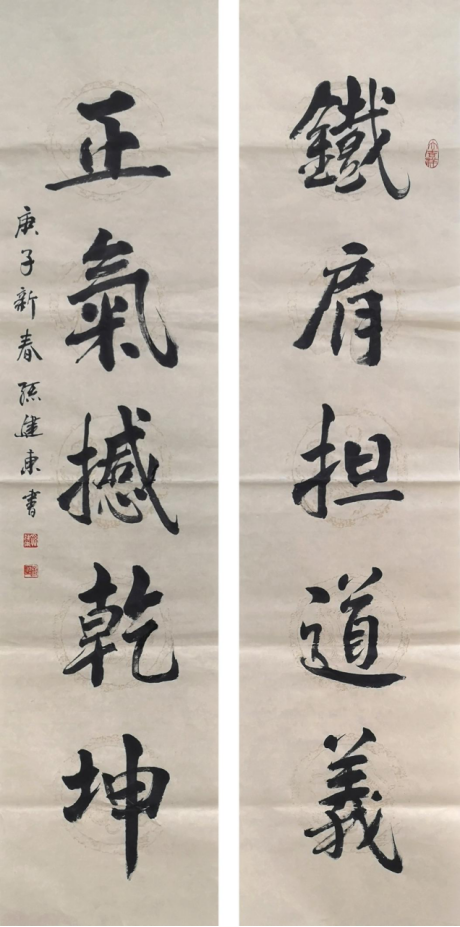 鐵肩担道義
正氣撼乾坤
庚子新春孫建東書